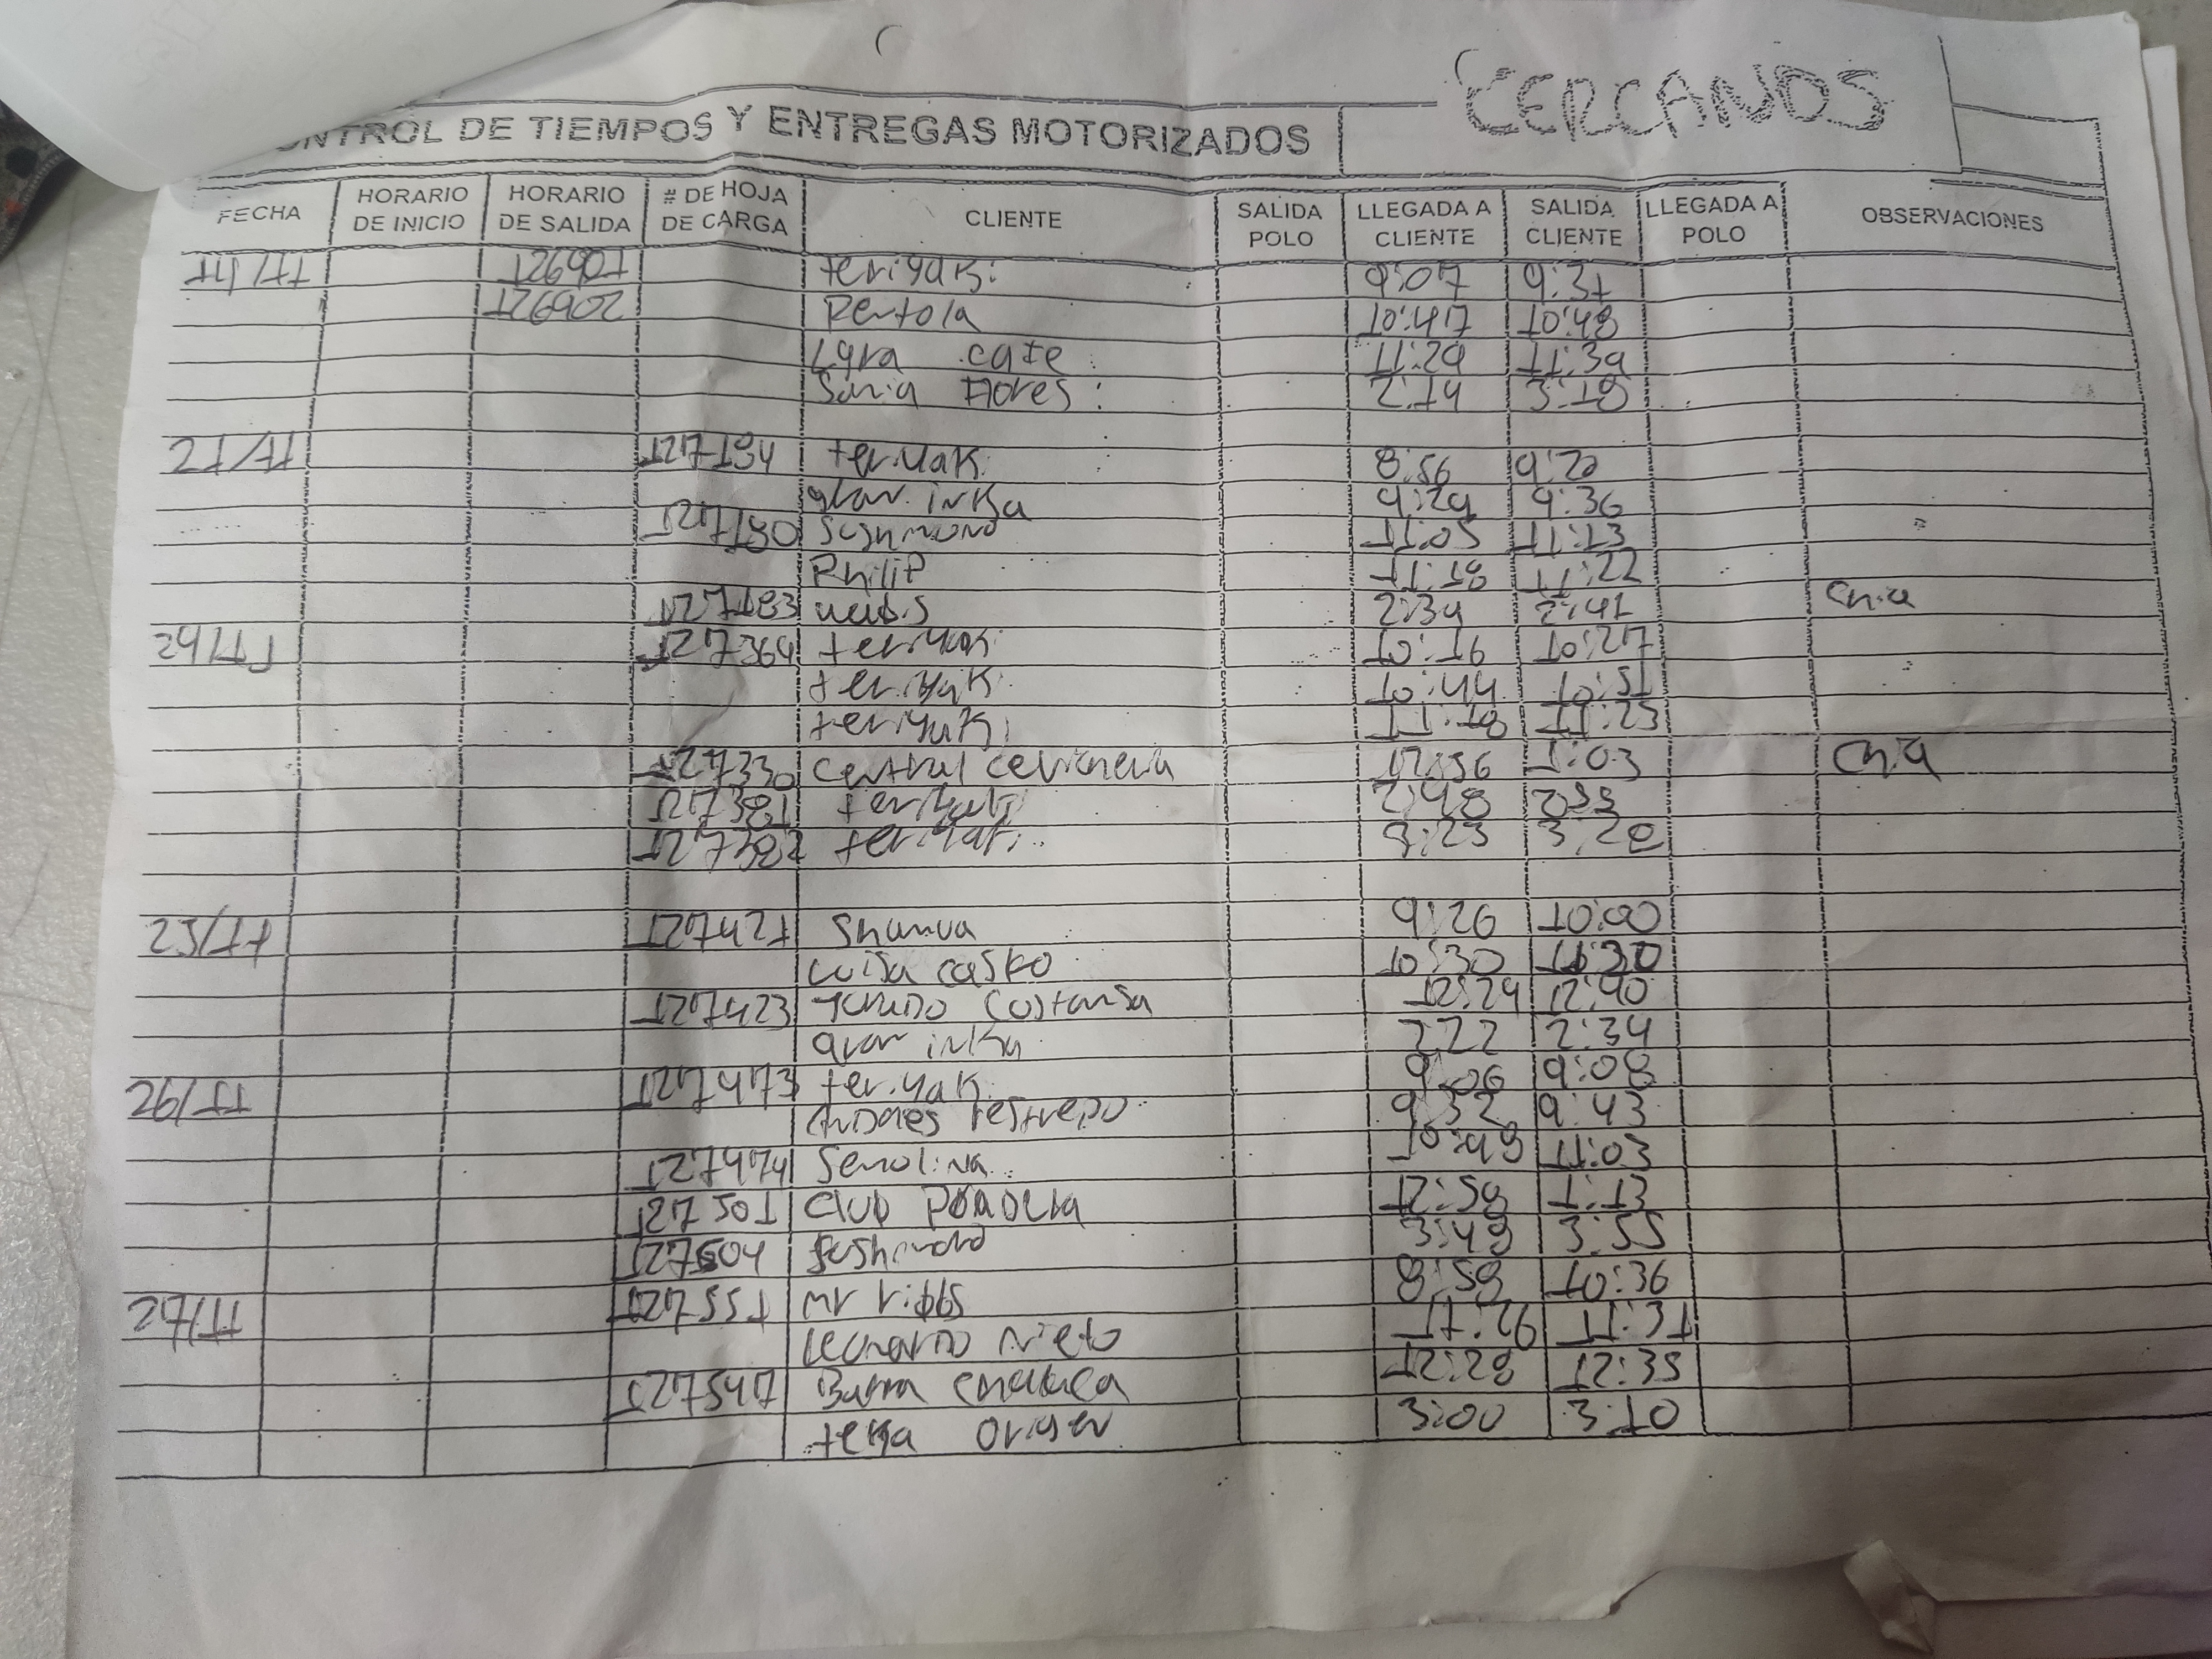 CERCANOS
CONTROL DE TIEMPOS Y ENTREGAS MOTORIZADOS
FECHA HORARIO DE INICIO HORARIO DE SALIDA # DE HOJA DE CARGA CLIENTE SALIDA POLO LLEGADA A CLIENTE SALIDA CLIENTE LLEGADA A POLO OBSERVACIONES
14/11 126901 teriyaki 9:07 9:31
126902 Pertola 10:47 10:48
Lyra cafe 11:29 11:39
Sonia Flores 2:14 3:18
21/11 127184 teriyaki 8:56 9:20
gran inka 9:29 9:36
127180 Sushimono 11:05 11:13
Philip 11:18 11:22
127183 2:39 2:41 Chia
29/11 127364 teriyaki 10:16 10:27
teriyaki 10:44 10:51
teriyaki 11:18 11:23
127330 central cevicheria 12:56 1:03 Chia
127381 teriyaki 2:48 2:55
127382 teriyaki 3:23
25/11 127421 Shanua 9:26 10:00
Luisa casko 10:30 11:30
127423 Costansa 12:24 12:40
gran inka 2:22 2:34
26/11 127473 teriyaki 9:06 9:08
Andres restrepo 9:32 9:43
127474 Semolina 10:48 11:03
127501 Club Pradera 12:58 1:13
127504 Sushimono 3:48 3:55
27/11 127551 mr ribbs 8:58 10:36
Leonardo nieto 11:26 11:31
127547 Burra chalaca 12:28 12:35
terra origen 3:00 3:10